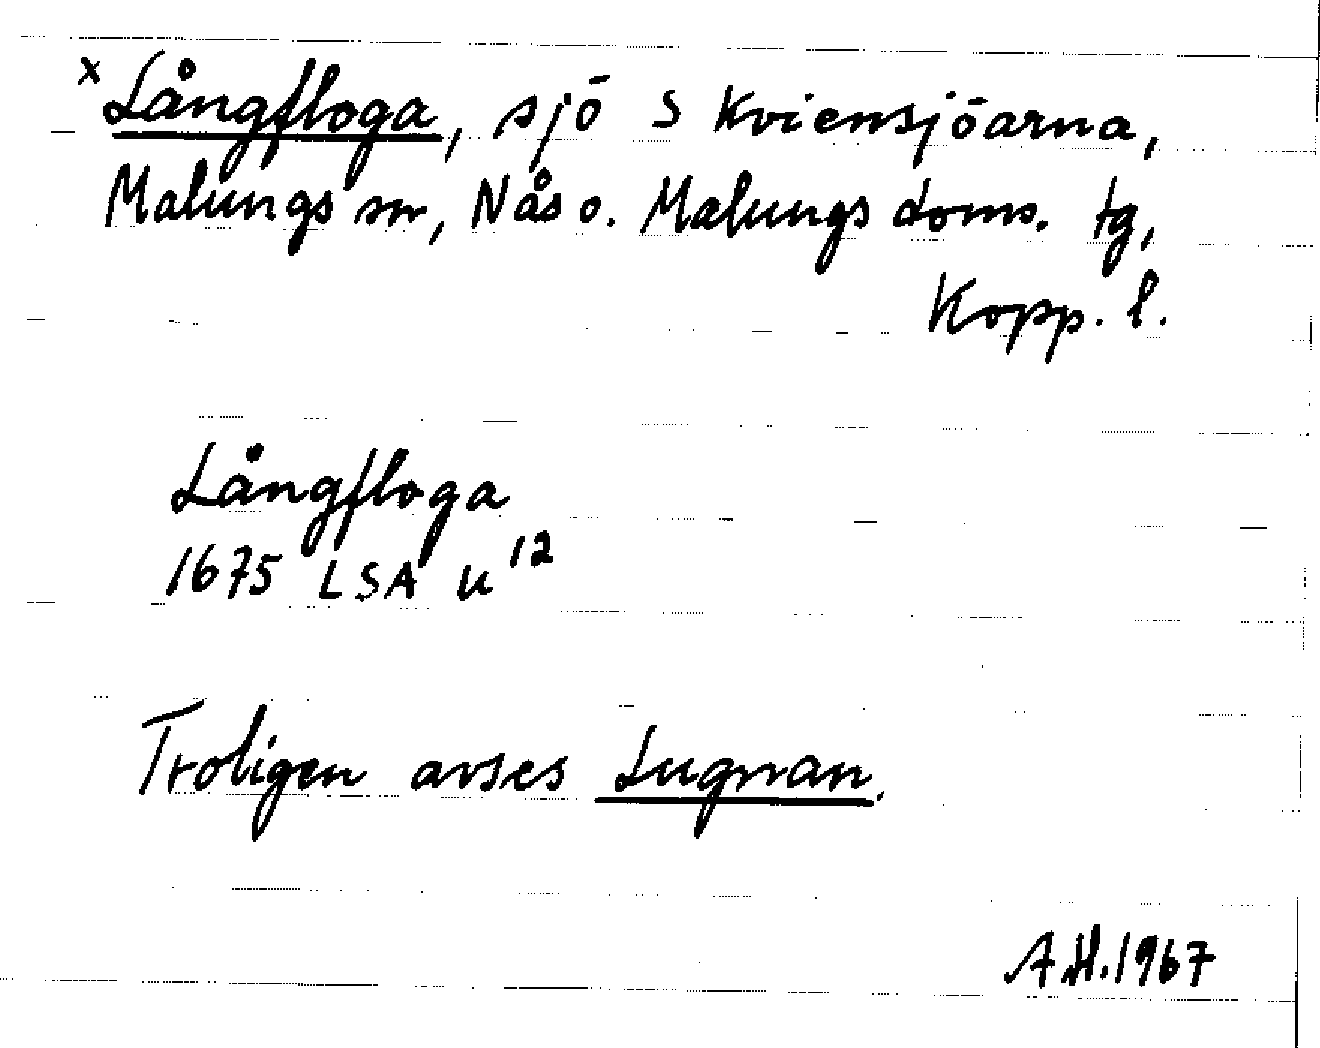 x Långfloga, sjö S Kviensjöarna,
Malungs sn, Nås o. Malungs doms. tg,
Kopp. l.
Långfloga
1675 LSA U 12
Troligen avses Lugnan.
A.H. 1967